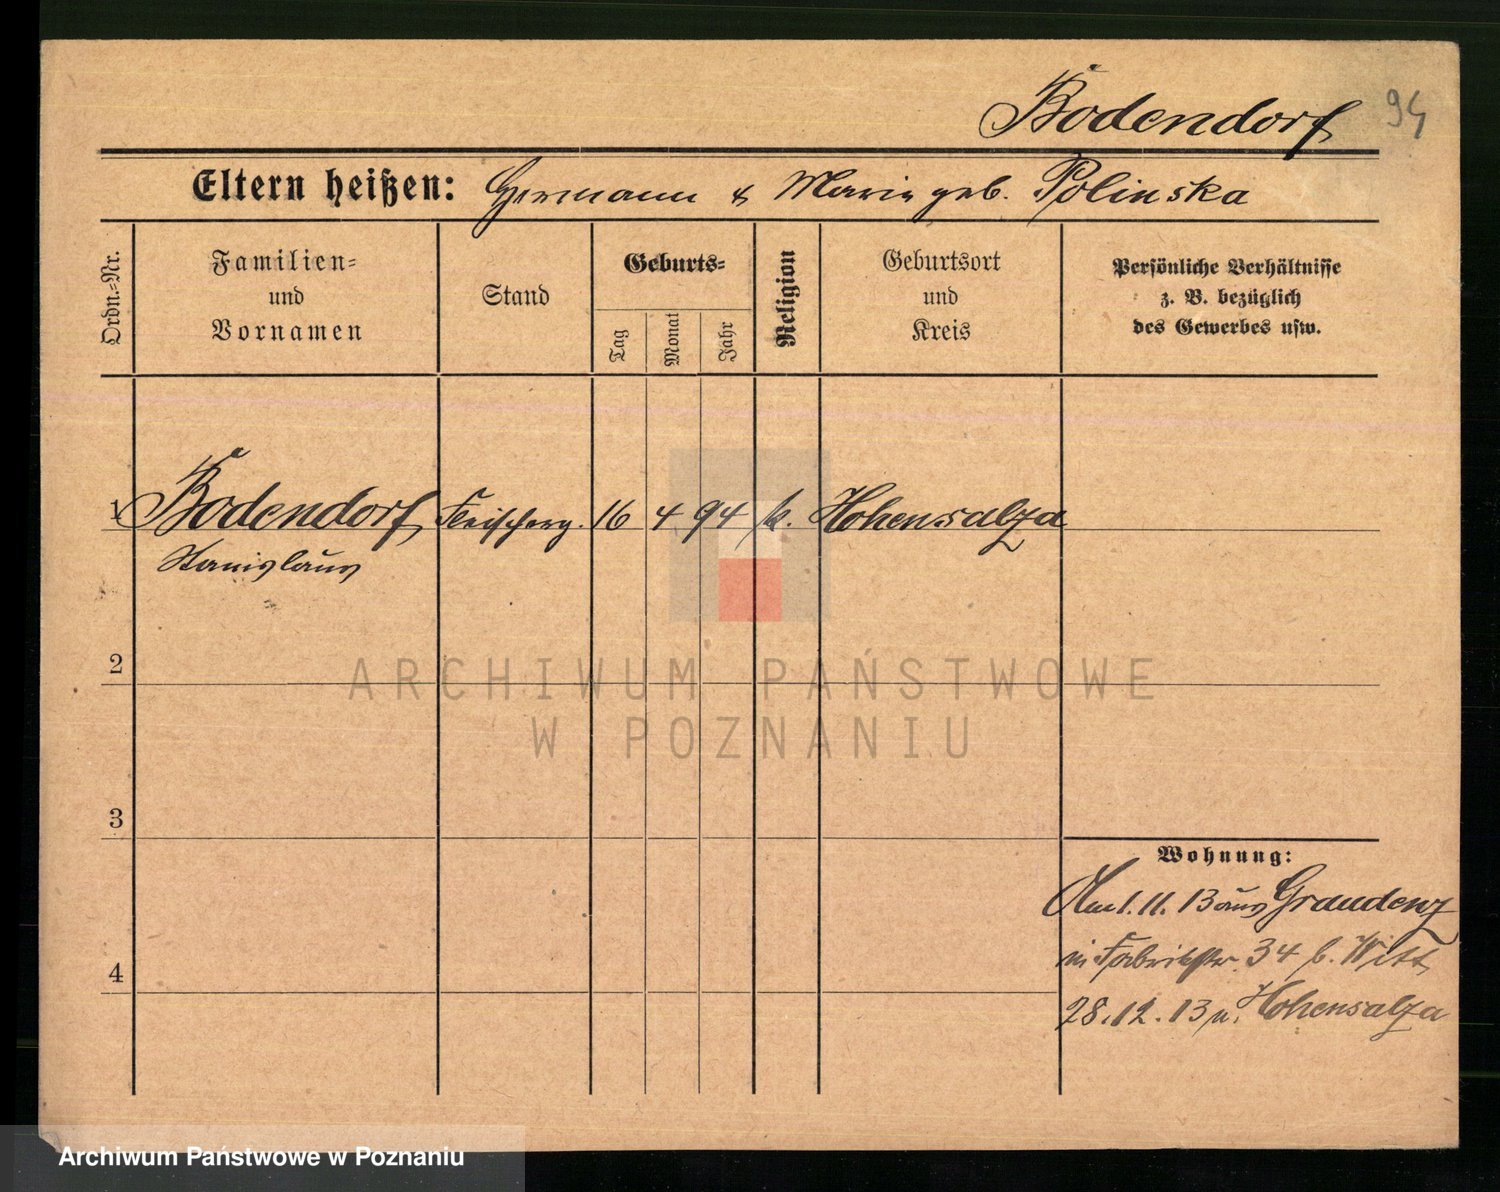 Bodendorf 94
Eltern heißen: Hermann & Marie geb. Polinska
Ordn.-Nr.
Familien-
und
Vornamen
Stand
Geburts-
Tag
Monat
Jahr
Religion
Geburtsort
und
Kreis
Persönliche Verhältnisse
z. B. bezüglich
des Gewerbes usw.
1 Bodendorf Fleischerg. 16 4 94 k. Hohensalza
Stanislaus
2
3
4
Wohnung:
Am 1. 11. 13 aus Graudenz
in Fabrikstr. 34 b. Witt
28. 12. 13 n. Hohensalza
ARCHIWUM PAŃSTWOWE
W POZNANIU
Archiwum Państwowe w Poznaniu